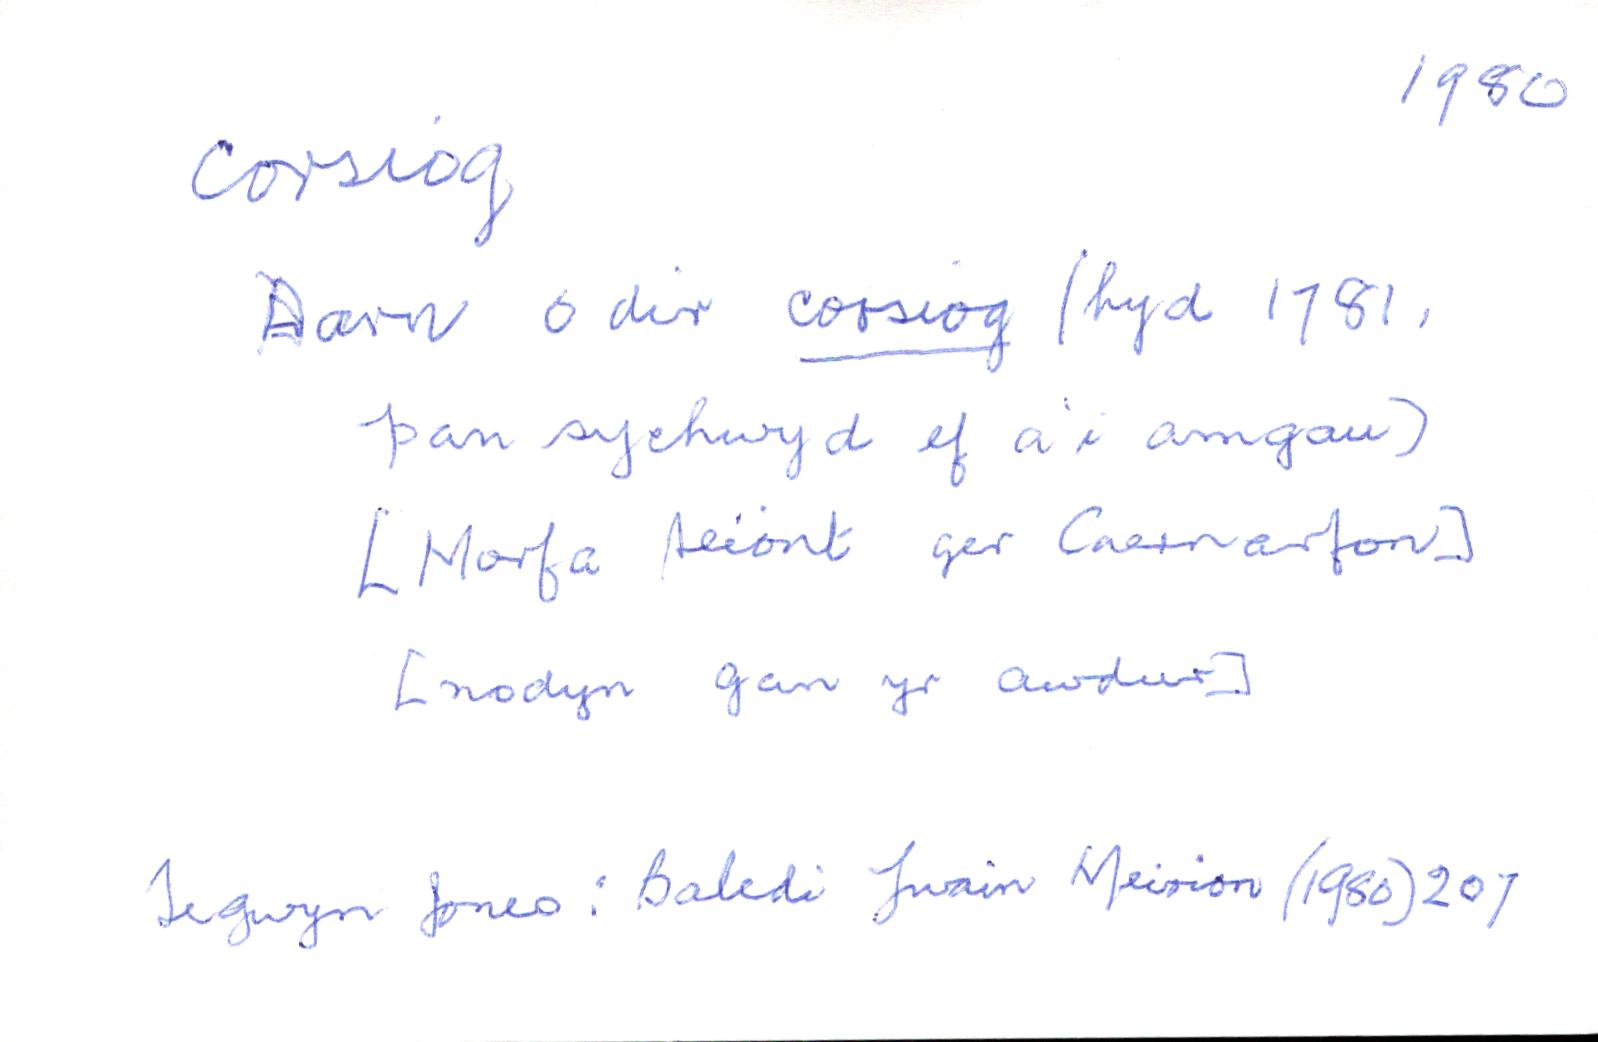 1980
corsiog
Darn o dir corsiog (hyd 1781,
pan sychwyd ef a'i amgau)
[Morfa Seiont ger Caernarfon]
[nodyn gan yr awdur]
Tegwyn Jones: Baledi Ywain Meirion (1980) 207